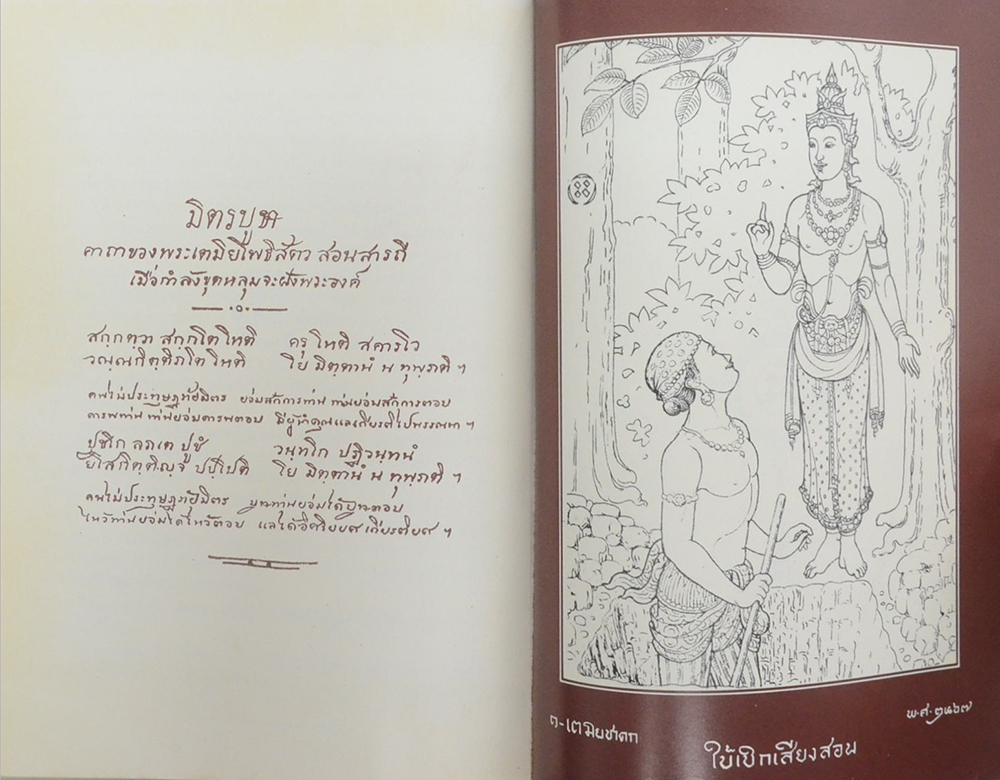 มิตรบูชา
คาถาของพระเตมิยโพธิสัตว สอนสารถี
เมื่อกำลังขุดหลุมจะฝังพระองค์
สกฺกตฺวา สกฺกโต โหติ ครุ โหติ สคารโว
วณฺณกิตฺติภโต โหติ โย มิตฺตานํ น ทุพฺภติ ฯ
คนไม่ประทุษฏภัยมิตร ย่อมสักการท่าน ท่านย่อมสักการตอบ
คารพท่าน ท่านย่อมคารพตอบ มีผู้นำคุณแลเกียรติไปพรรณนา ฯ
ปูชโก ลภเต ปูชํ วนฺทโก ปฏิวนฺทนํ
ยโสกิตฺติญฺจ ปปฺโปติ โย มิตฺตานํ น ทุพฺภติ ฯ
คนไม่ประทุษฏภัยมิตร บูชาท่านย่อมได้บูชาตอบ
ไหว้ท่านย่อมได้ไหว้ตอบ แลได้อิศริยยศ เกียรติยศ ฯ
๑-เตมิยชาดก
พ.ศ.๒๔๖๗
ใบ้เบิกเสียงสอน